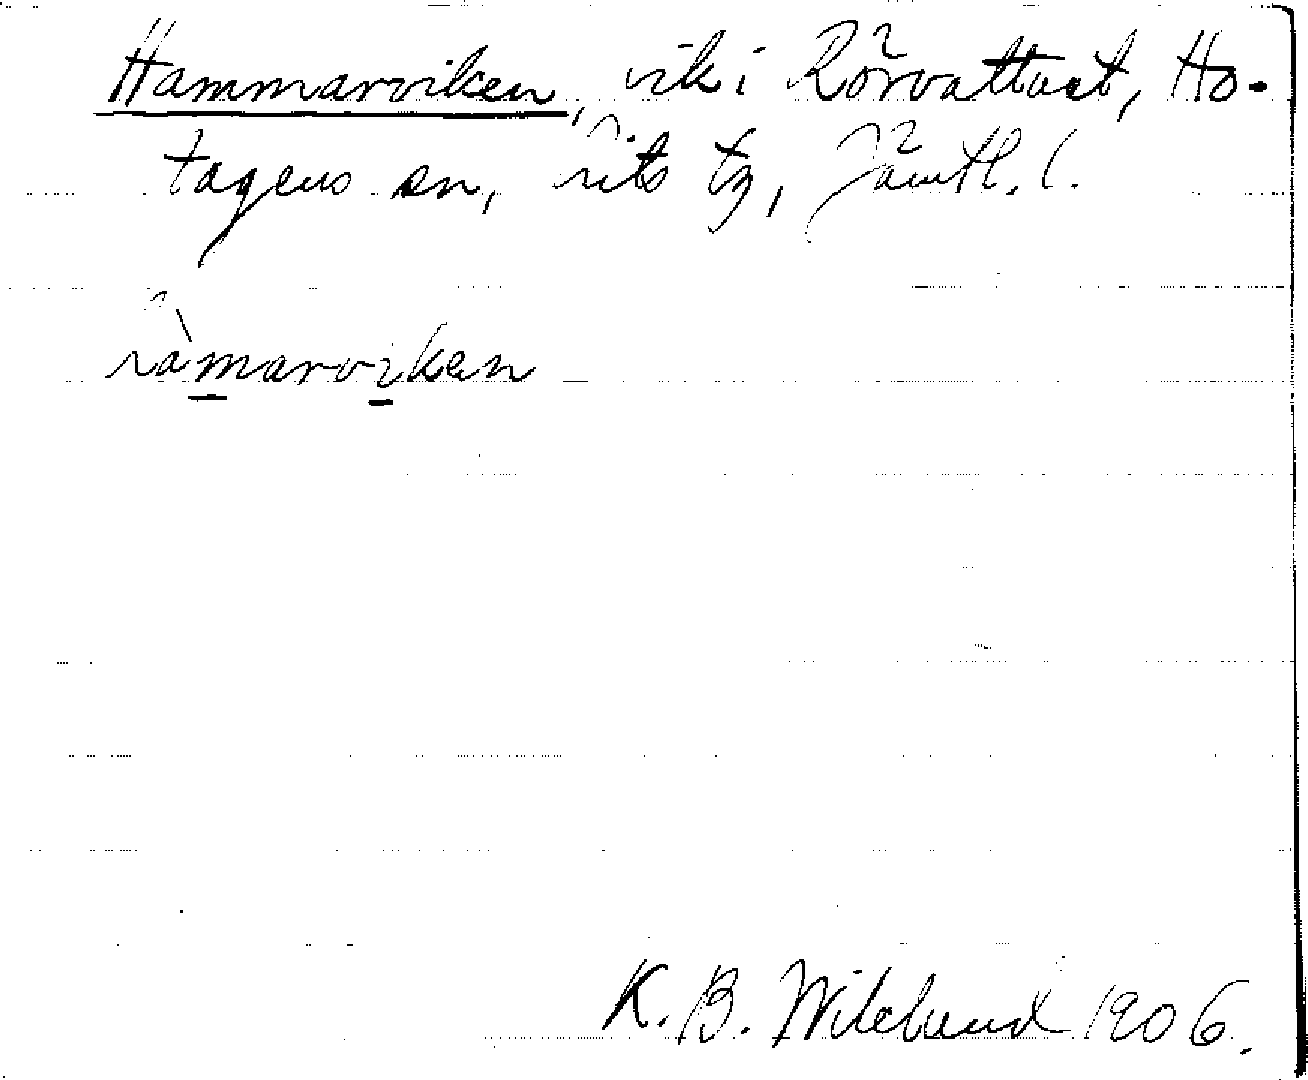 Hammarviken, vik i Rörvattnet, Ho-
tagens sn, tg, Jämtl. l.
K. B. Wiklund 1906.